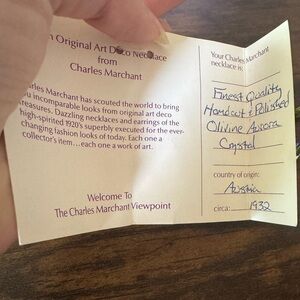 An Original Art Deco Necklace
from
Charles Marchant
Charles Marchant has scouted the world to bring
you incomparable looks from original art deco
treasures. Dazzling necklaces and earrings of the
high-spirited 1920's superbly executed for the ever-
changing fashion looks of today. Each one a
collector's item...each one a work of art.
Welcome To
The Charles Marchant Viewpoint
Your Charles Marchant
necklace is:
Finest Quality
Handcut & Polished
Olivine Aurora
Crystal
country of origin:
Austria
circa: 1932